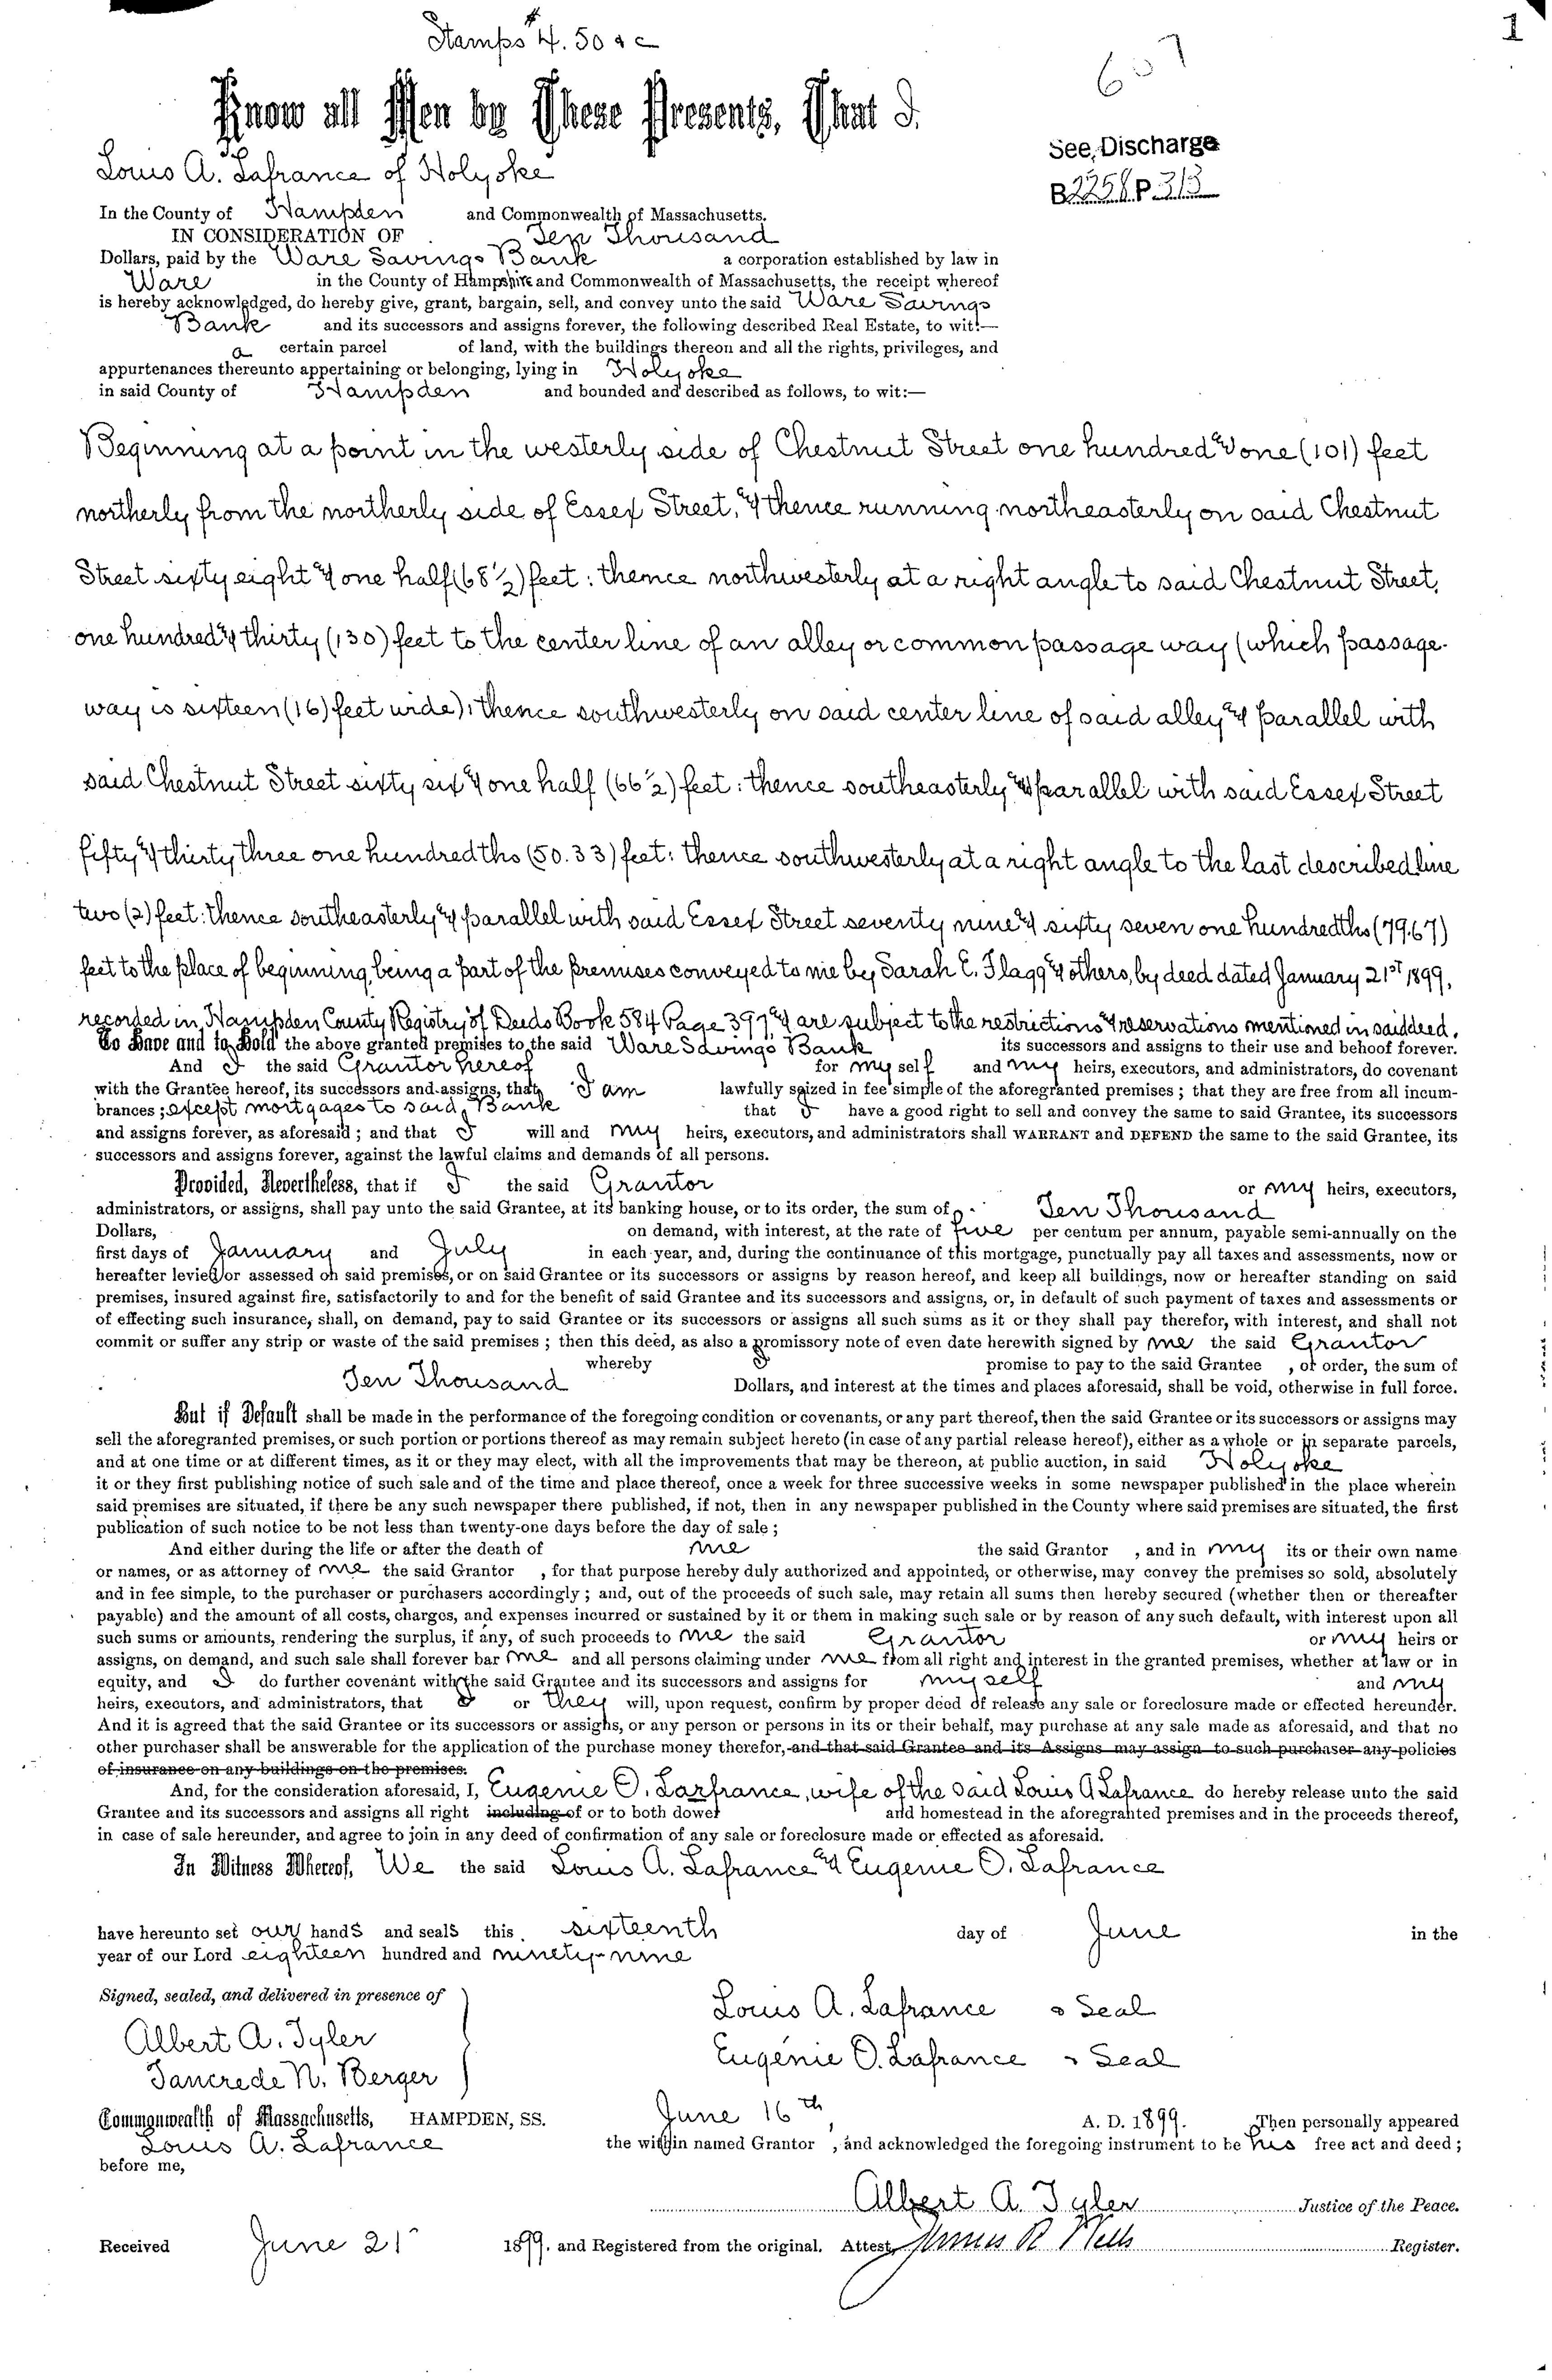 1
Stamps $4.50 & c
607
Know all Men by These Presents, That I.
See Discharge
B2258P313
Louis A. Lafrance of Holyoke
In the County of Hampden and Commonwealth of Massachusetts.
IN CONSIDERATION OF Ten Thousand
Dollars, paid by the Ware Savings Bank a corporation established by law in
Ware in the County of Hampshire and Commonwealth of Massachusetts, the receipt whereof
is hereby acknowledged, do hereby give, grant, bargain, sell, and convey unto the said Ware Savings
Bank and its successors and assigns forever, the following described Real Estate, to wit:—
a certain parcel of land, with the buildings thereon and all the rights, privileges, and
appurtenances thereunto appertaining or belonging, lying in Holyoke
in said County of Hampden and bounded and described as follows, to wit:—
Beginning at a point in the westerly side of Chestnut Street one hundred and one (101) feet
northerly from the northerly side of Essex Street, and thence running northeasterly on said Chestnut
Street sixty eight and one half (68 1/2) feet: thence northwesterly at a right angle to said Chestnut Street,
one hundred and thirty (130) feet to the center line of an alley or common passage way (which passage-
way is sixteen (16) feet wide); thence southwesterly on said center line of said alley and parallel with
said Chestnut Street sixty six and one half (66 1/2) feet: thence southeasterly and parallel with said Essex Street
fifty and thirty three one hundredths (50.33) feet: thence southwesterly at a right angle to the last described line
two (2) feet: thence southeasterly and parallel with said Essex Street seventy nine and sixty seven one hundredths (79.67)
feet to the place of beginning, being a part of the premises conveyed to me by Sarah E. Flagg and others, by deed dated January 21st 1899,
recorded in Hampden County Registry of Deeds Book 584 Page 397 and are subject to the restrictions and reservations mentioned in said deed.
To Have and to Hold the above granted premises to the said Ware Savings Bank its successors and assigns to their use and behoof forever.
And I the said Grantor hereof for my self and my heirs, executors, and administrators, do covenant
with the Grantee hereof, its successors and assigns, that I am lawfully seized in fee simple of the aforegranted premises; that they are free from all incum-
brances; except mortgages to said Bank that I have a good right to sell and convey the same to said Grantee, its successors
and assigns forever, as aforesaid; and that I will and my heirs, executors, and administrators shall WARRANT and DEFEND the same to the said Grantee, its
successors and assigns forever, against the lawful claims and demands of all persons.
Provided, Nevertheless, that if I the said Grantor or my heirs, executors,
administrators, or assigns, shall pay unto the said Grantee, at its banking house, or to its order, the sum of Ten Thousand
Dollars, on demand, with interest, at the rate of five per centum per annum, payable semi-annually on the
first days of January and July in each year, and, during the continuance of this mortgage, punctually pay all taxes and assessments, now or
hereafter levied or assessed on said premises, or on said Grantee or its successors or assigns by reason hereof, and keep all buildings, now or hereafter standing on said
premises, insured against fire, satisfactorily to and for the benefit of said Grantee and its successors and assigns, or, in default of such payment of taxes and assessments or
of effecting such insurance, shall, on demand, pay to said Grantee or its successors or assigns all such sums as it or they shall pay therefor, with interest, and shall not
commit or suffer any strip or waste of the said premises; then this deed, as also a promissory note of even date herewith signed by me the said Grantor
whereby I promise to pay to the said Grantee , or order, the sum of
Ten Thousand Dollars, and interest at the times and places aforesaid, shall be void, otherwise in full force.
But if Default shall be made in the performance of the foregoing condition or covenants, or any part thereof, then the said Grantee or its successors or assigns may
sell the aforegranted premises, or such portion or portions thereof as may remain subject hereto (in case of any partial release hereof), either as a whole or in separate parcels,
and at one time or at different times, as it or they may elect, with all the improvements that may be thereon, at public auction, in said Holyoke
it or they first publishing notice of such sale and of the time and place thereof, once a week for three successive weeks in some newspaper published in the place wherein
said premises are situated, if there be any such newspaper there published, if not, then in any newspaper published in the County where said premises are situated, the first
publication of such notice to be not less than twenty-one days before the day of sale;
And either during the life or after the death of me the said Grantor , and in my its or their own name
or names, or as attorney of me the said Grantor , for that purpose hereby duly authorized and appointed, or otherwise, may convey the premises so sold, absolutely
and in fee simple, to the purchaser or purchasers accordingly; and, out of the proceeds of such sale, may retain all sums then hereby secured (whether then or thereafter
payable) and the amount of all costs, charges, and expenses incurred or sustained by it or them in making such sale or by reason of any such default, with interest upon all
such sums or amounts, rendering the surplus, if any, of such proceeds to me the said Grantor or my heirs or
assigns, on demand, and such sale shall forever bar me and all persons claiming under me from all right and interest in the granted premises, whether at law or in
equity, and I do further covenant with the said Grantee and its successors and assigns for my self and my
heirs, executors, and administrators, that I or they will, upon request, confirm by proper deed of release any sale or foreclosure made or effected hereunder.
And it is agreed that the said Grantee or its successors or assigns, or any person or persons in its or their behalf, may purchase at any sale made as aforesaid, and that no
other purchaser shall be answerable for the application of the purchase money therefor, and that said Grantee and its Assigns may assign to such purchaser any policies
of insurance on any buildings on the premises.
And, for the consideration aforesaid, I, Eugenie O. Lazfrance, wife of the said Louis A Lafrance do hereby release unto the said
Grantee and its successors and assigns all right including of or to both dower and homestead in the aforegranted premises and in the proceeds thereof,
in case of sale hereunder, and agree to join in any deed of confirmation of any sale or foreclosure made or effected as aforesaid.
In Witness Whereof, We the said Louis A. Lafrance and Eugenie O. Lafrance
have hereunto set our hands and seals this sixteenth day of June in the
year of our Lord eighteen hundred and ninety-nine
Signed, sealed, and delivered in presence of
Albert A. Tyler
Tancrede N. Berger
Louis A. Lafrance Seal
Eugénie O. Lafrance Seal
Commonwealth of Massachusetts, HAMPDEN, SS. June 16th, A. D. 1899. Then personally appeared
Louis A. Lafrance the within named Grantor , and acknowledged the foregoing instrument to be his free act and deed;
before me,
Albert A. Tyler Justice of the Peace.
Received June 21 1899. and Registered from the original. Attest, James R Wells Register.